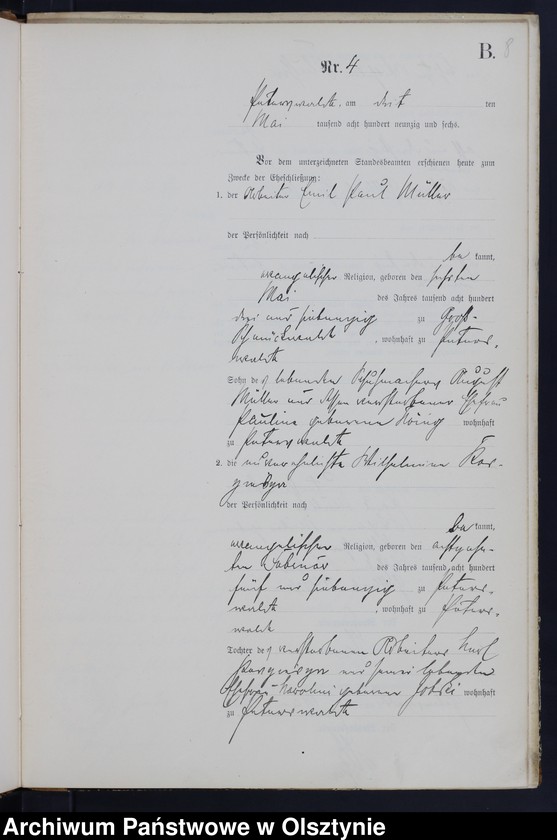 B. 8
Nr. 4
Peterswalde, am drit ten
Mai tausend acht hundert neunzig und sechs.
Vor dem unterzeichneten Standesbeamten erschienen heute zum
Zwecke der Eheschließung:
1. der Arbeiter Emil Paul Müller
der Persönlichkeit nach
be kannt,
evangelischer Religion, geboren den sechsten
Mai des Jahres tausend acht hundert
drei und siebenzig zu Groß-
, wohnhaft zu Peters-
walde
Sohn des lebenden Schuhmachers August
Müller und dessen verstorbener Ehefrau
Pauline geborene König wohnhaft
zu Peterswalde
2. die unverehelichte Wilhelmine
der Persönlichkeit nach
be kannt,
evangelischer Religion, geboren den achtzehn-
ten Februar des Jahres tausend acht hundert
fünf und siebenzig zu Peters-
walde , wohnhaft zu Peters-
walde
Tochter des verstorbenen Arbeiters Karl
und seiner lebenden
Ehefrau Karoline geborene wohnhaft
zu Peterswalde
Archiwum Państwowe w Olsztynie